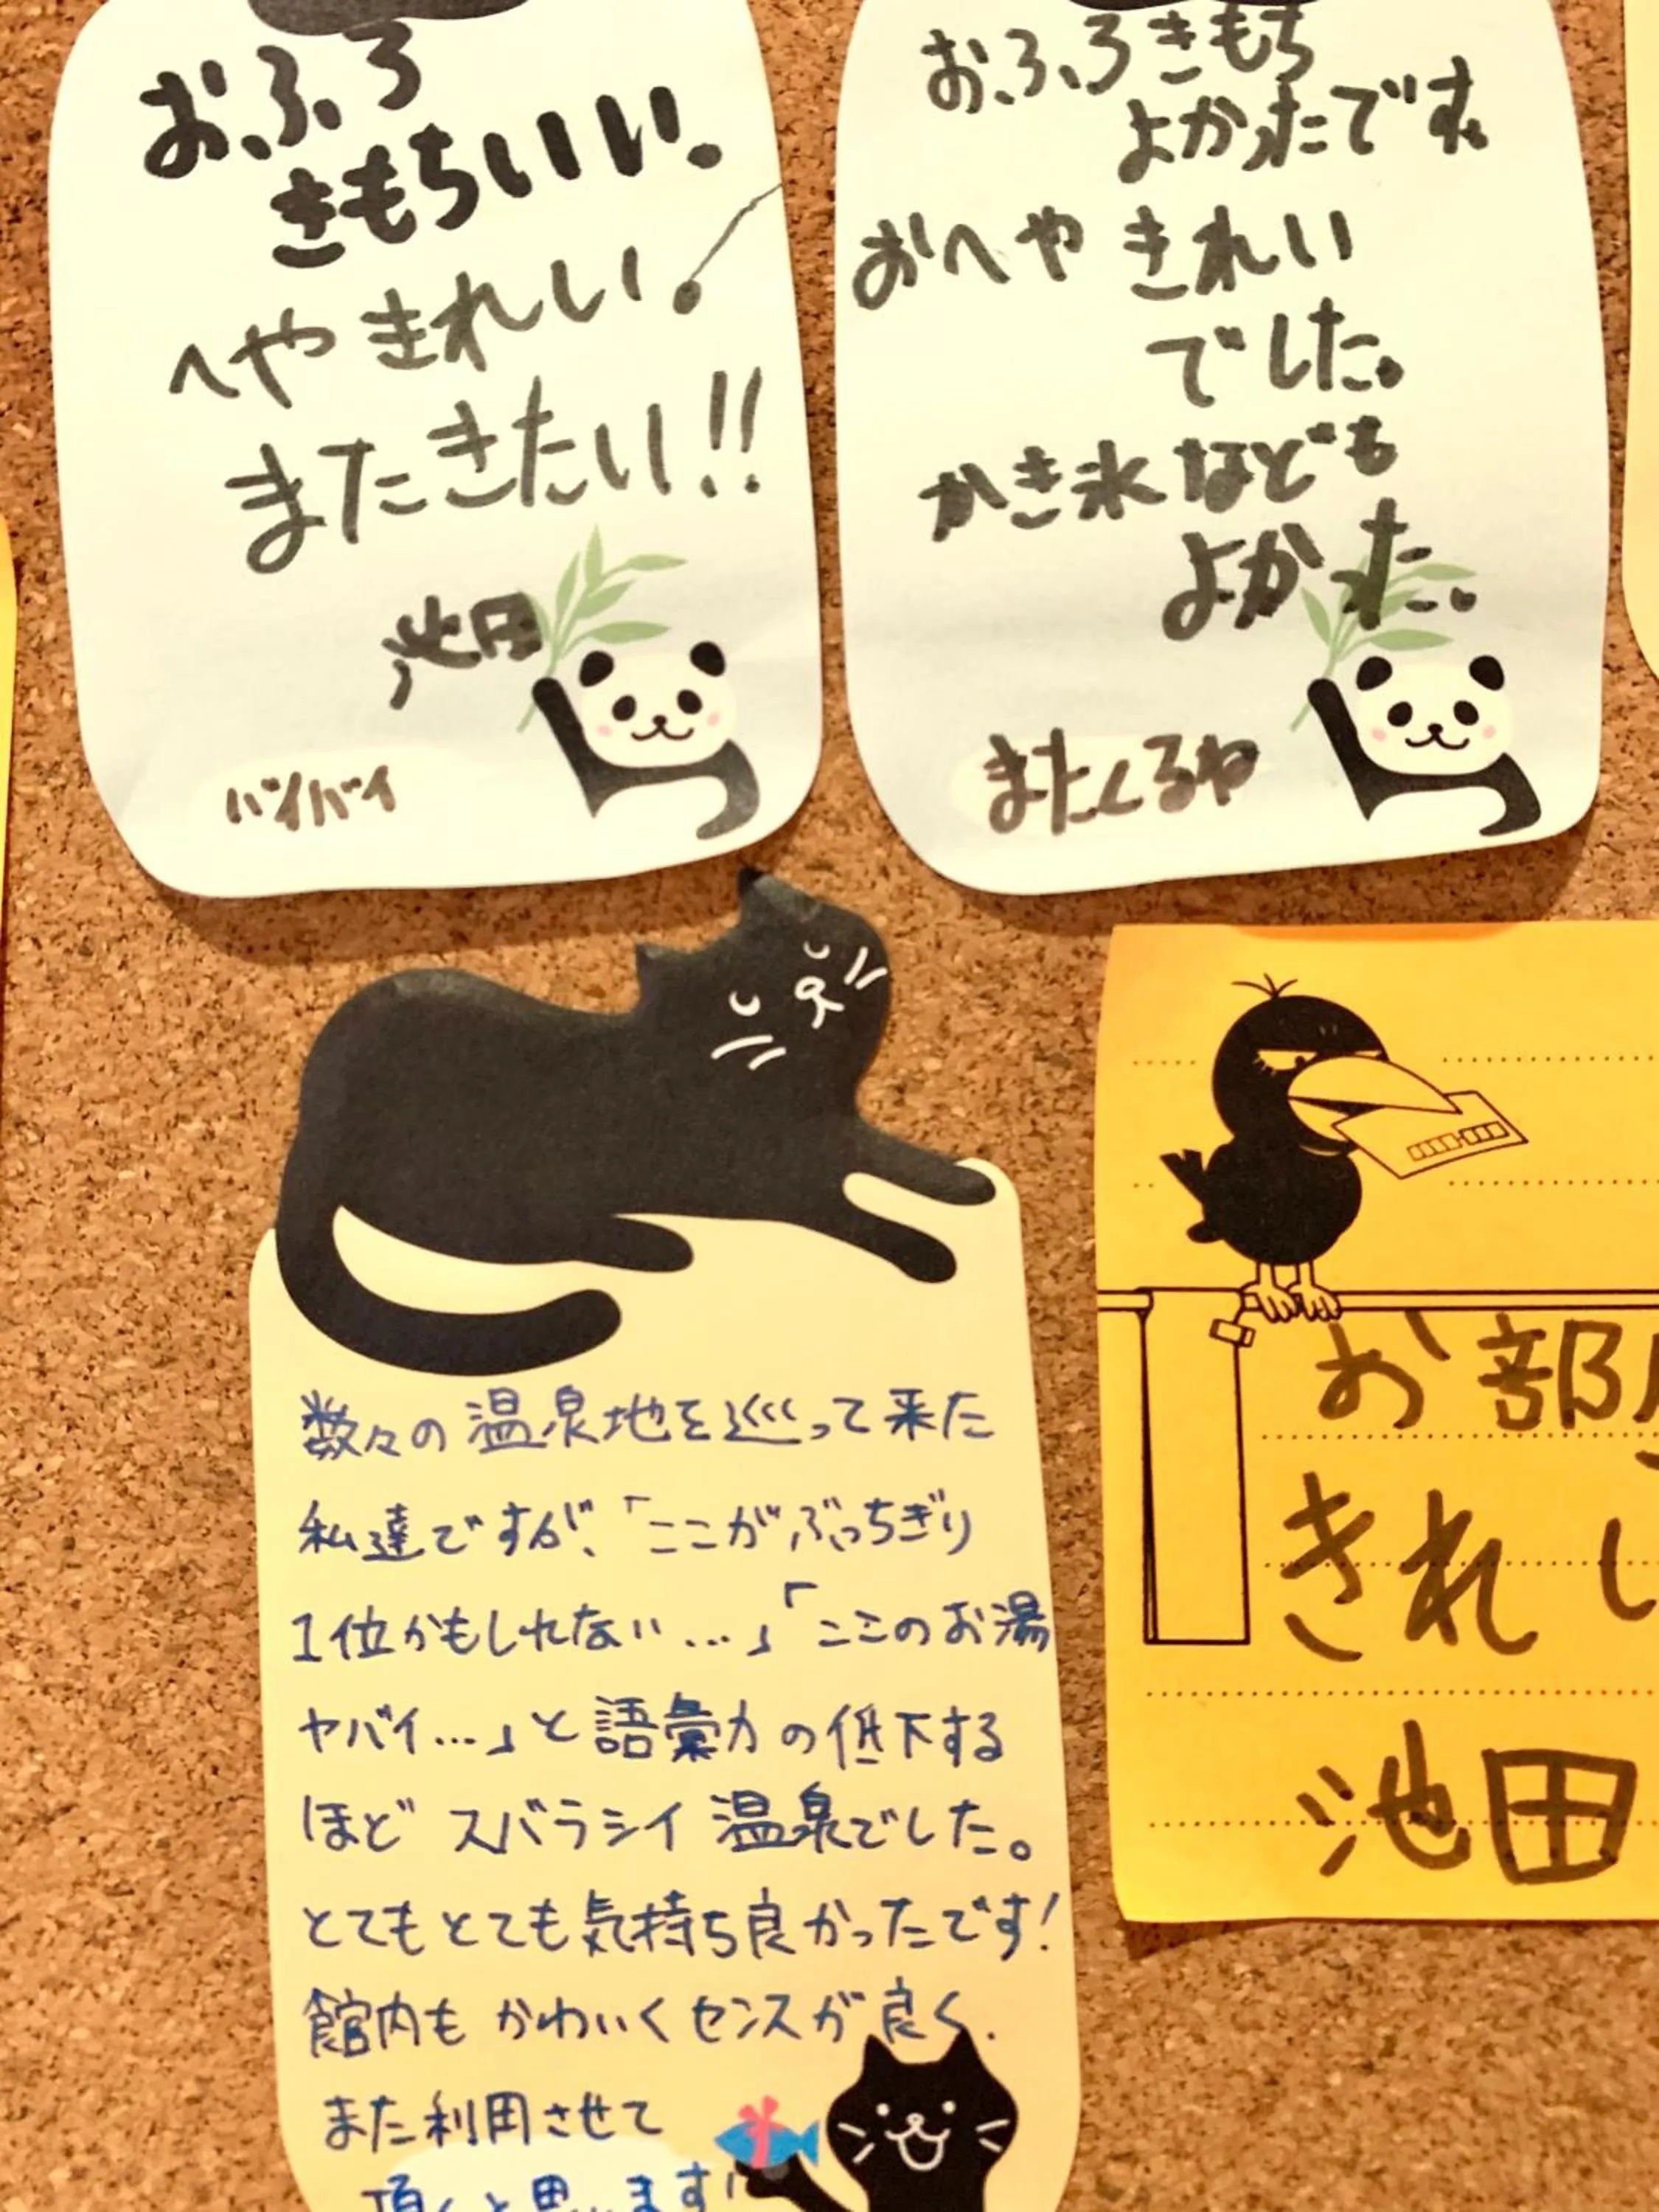 おふろ
きもちいい。
へやきれい。
またきたい!!
池田
バイバイ
おふろきもち
よかったです。
おへやきれい
でした。
かき氷なども
よかった。
またくるね
数々の温泉地を巡って来た
私達ですが、「ここがぶっちぎり
1位かもしれない…」「ここのお湯
ヤバイ…」と語彙力の低下する
ほどスバラシイ温泉でした。
とてもとても気持ち良かったです!
館内もかわいくセンスが良く、
また利用させて
頂くと思います!!
お部
きれい
池田